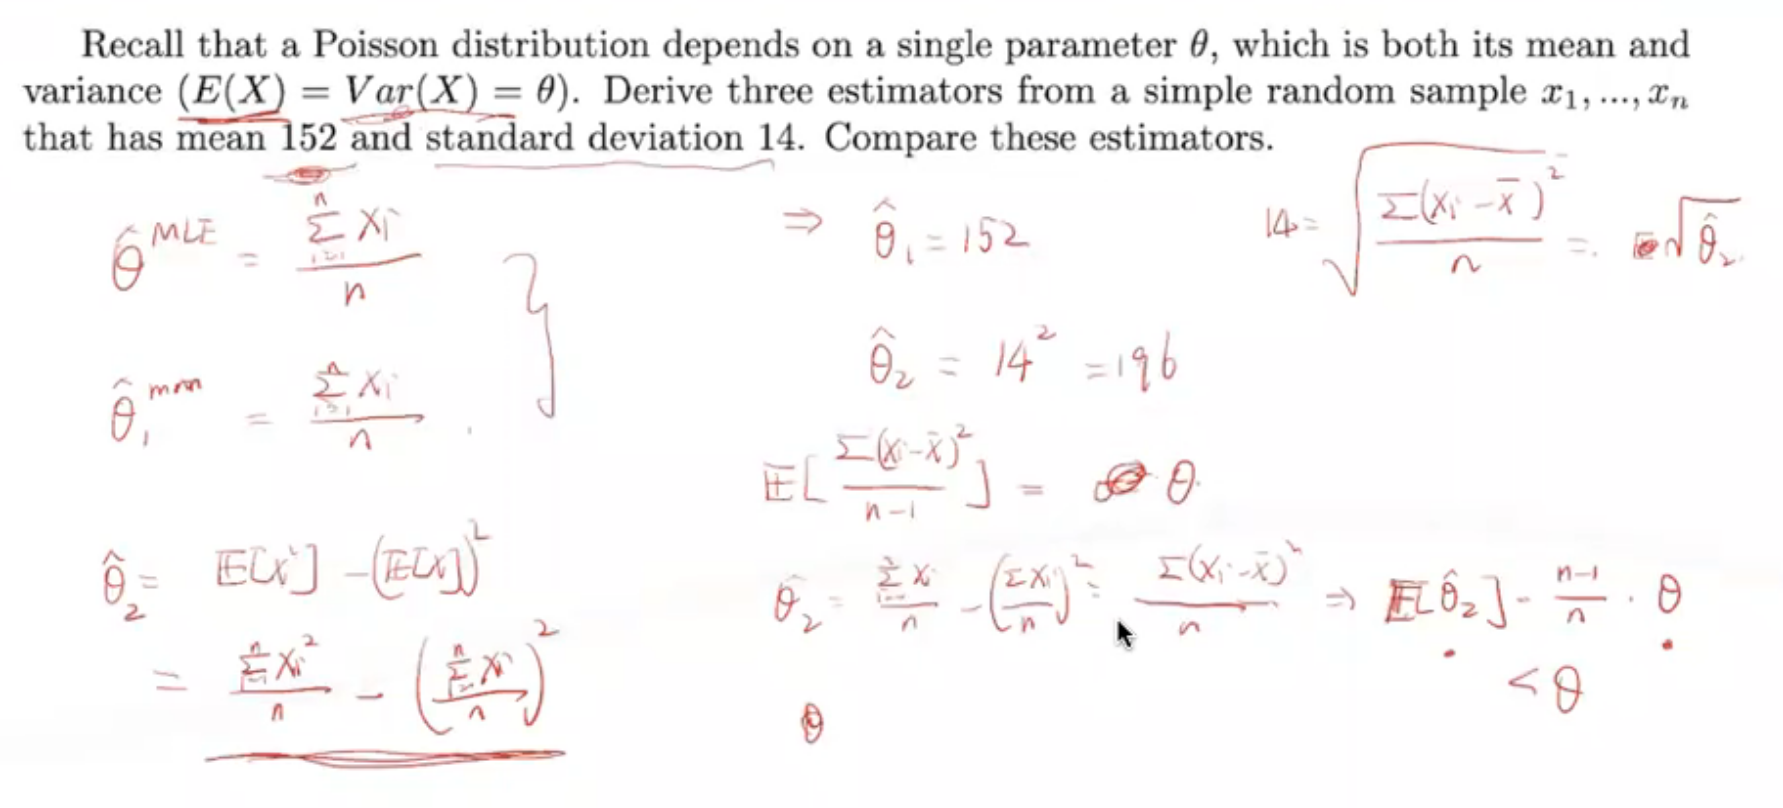 Recall that a Poisson distribution depends on a single parameter θ, which is both its mean and
variance (E(X) = Var(X) = θ). Derive three estimators from a simple random sample x₁, ..., xₙ
that has mean 152 and standard deviation 14. Compare these estimators.
θ̂^MLE = Σ_{i=1}^n Xi / n
θ̂₁^mm = Σ_{i=1}^n Xi / n .
θ̂₂ = E[X²] - (E[X])²
= Σ_{i=1}^n Xi² / n - (Σ_{i=1}^n Xi / n)²
⇒ θ̂₁ = 152
14 = √(Σ(Xi - x̄)² / n) = √θ̂₂
θ̂₂ = 14² = 196
E[Σ(Xi - x̄)² / n-1] = θ
θ̂₂ = Σ_{i=1}^n Xi / n - (ΣXi / n)² = Σ(Xi - x̄)² / n ⇒ E[θ̂₂] = n-1 / n . θ
< θ
θ